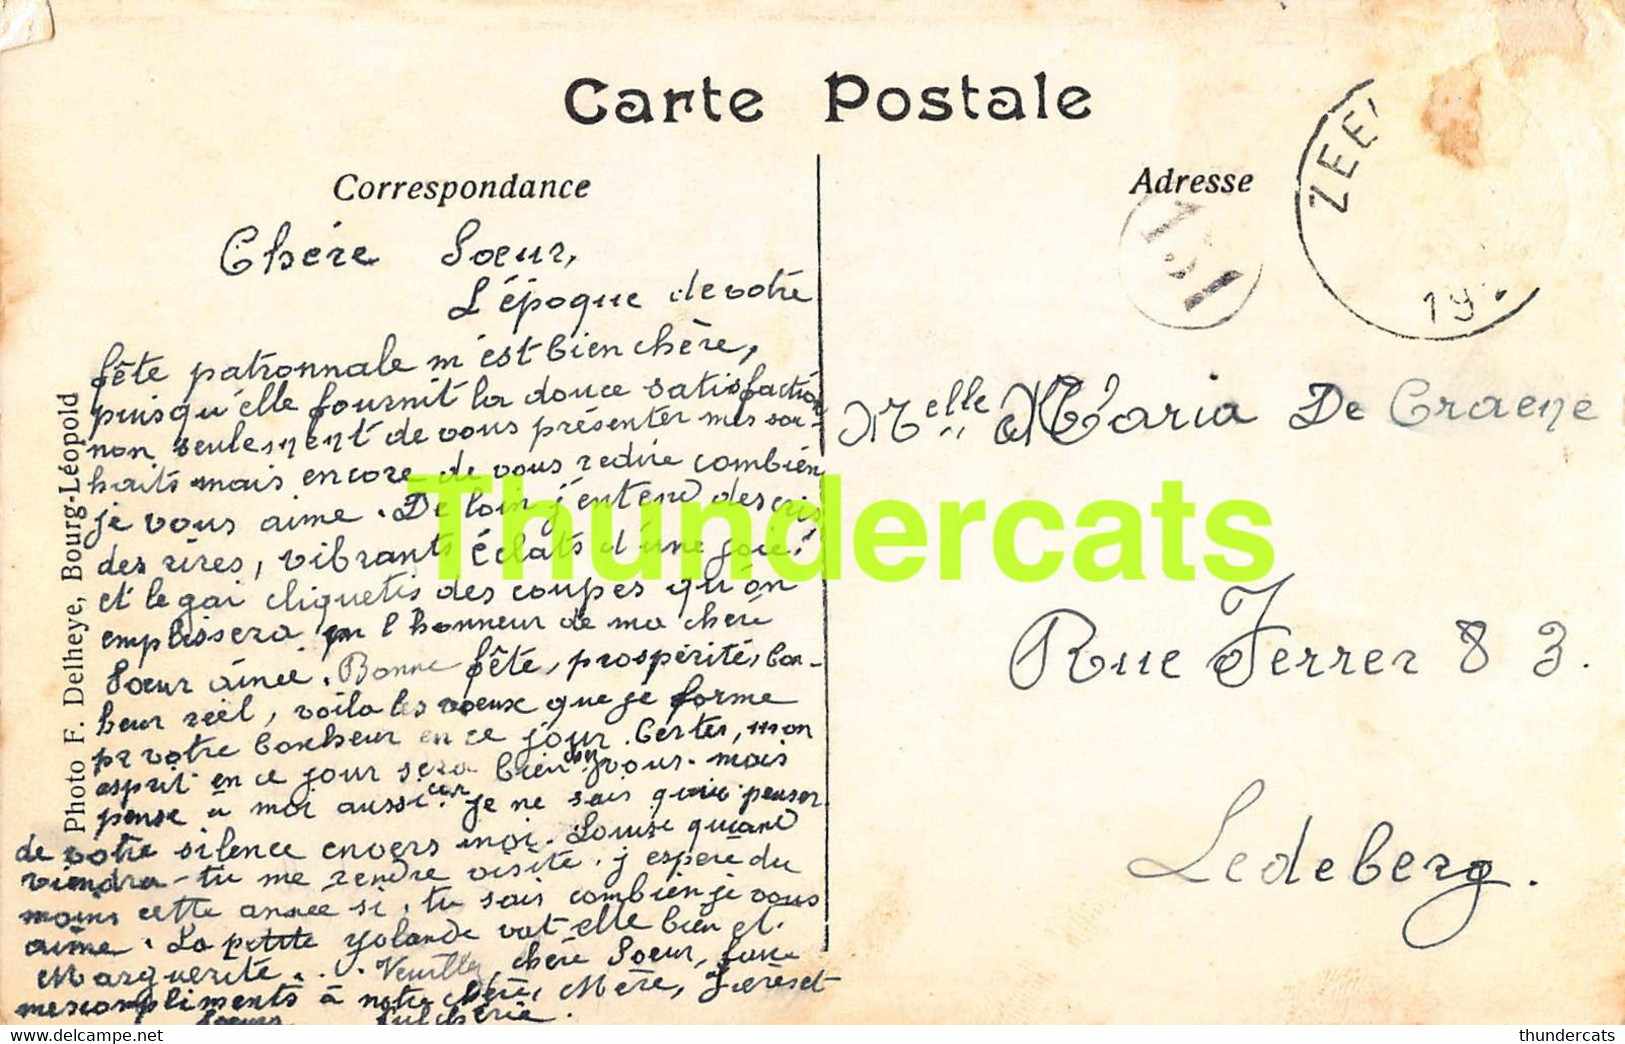 Carte Postale
Correspondance
Adresse
ZEE
19
131
Chére Sœur,
L'époque de votre
fête patronnale m'est bien chère,
puisqu'elle fournit la douce satisfaction
non seulement de vous présenter mes sou-
haits mais encore de vous redire combien
je vous aime. De loin j'entend des cris
des rires, vibrants éclats d'une joie!
et le gai cliquetis des coupes qu'on
emplissera en l'honneur de ma chère
Sœur ainée. Bonne fête, prospérité, bon-
heur réel, voila les voeux que je forme
pr votre bonheur en ce jour. Certes, mon
esprit en ce jour sera bien chez vous. mais
pense à moi aussi car je ne sais quoi penser
de votre silence envers moi. Louise quand
viendra-tu me rendre visite. j'espère du
moins cette année si, tu sais combien je vous
aime. La petite Yolande vat elle bien et.
Marguerite. . . Veuillez, chère Soeur, faire
mes compliments à notre chère, Mère, Frères et
Soeurs Fulchérie.
Photo F. Delheye, Bourg-Léopold
Melle Maria De Craene
Rue Ferrer 83.
Ledeberg.
Thundercats
thundercats - www.delcampe.net